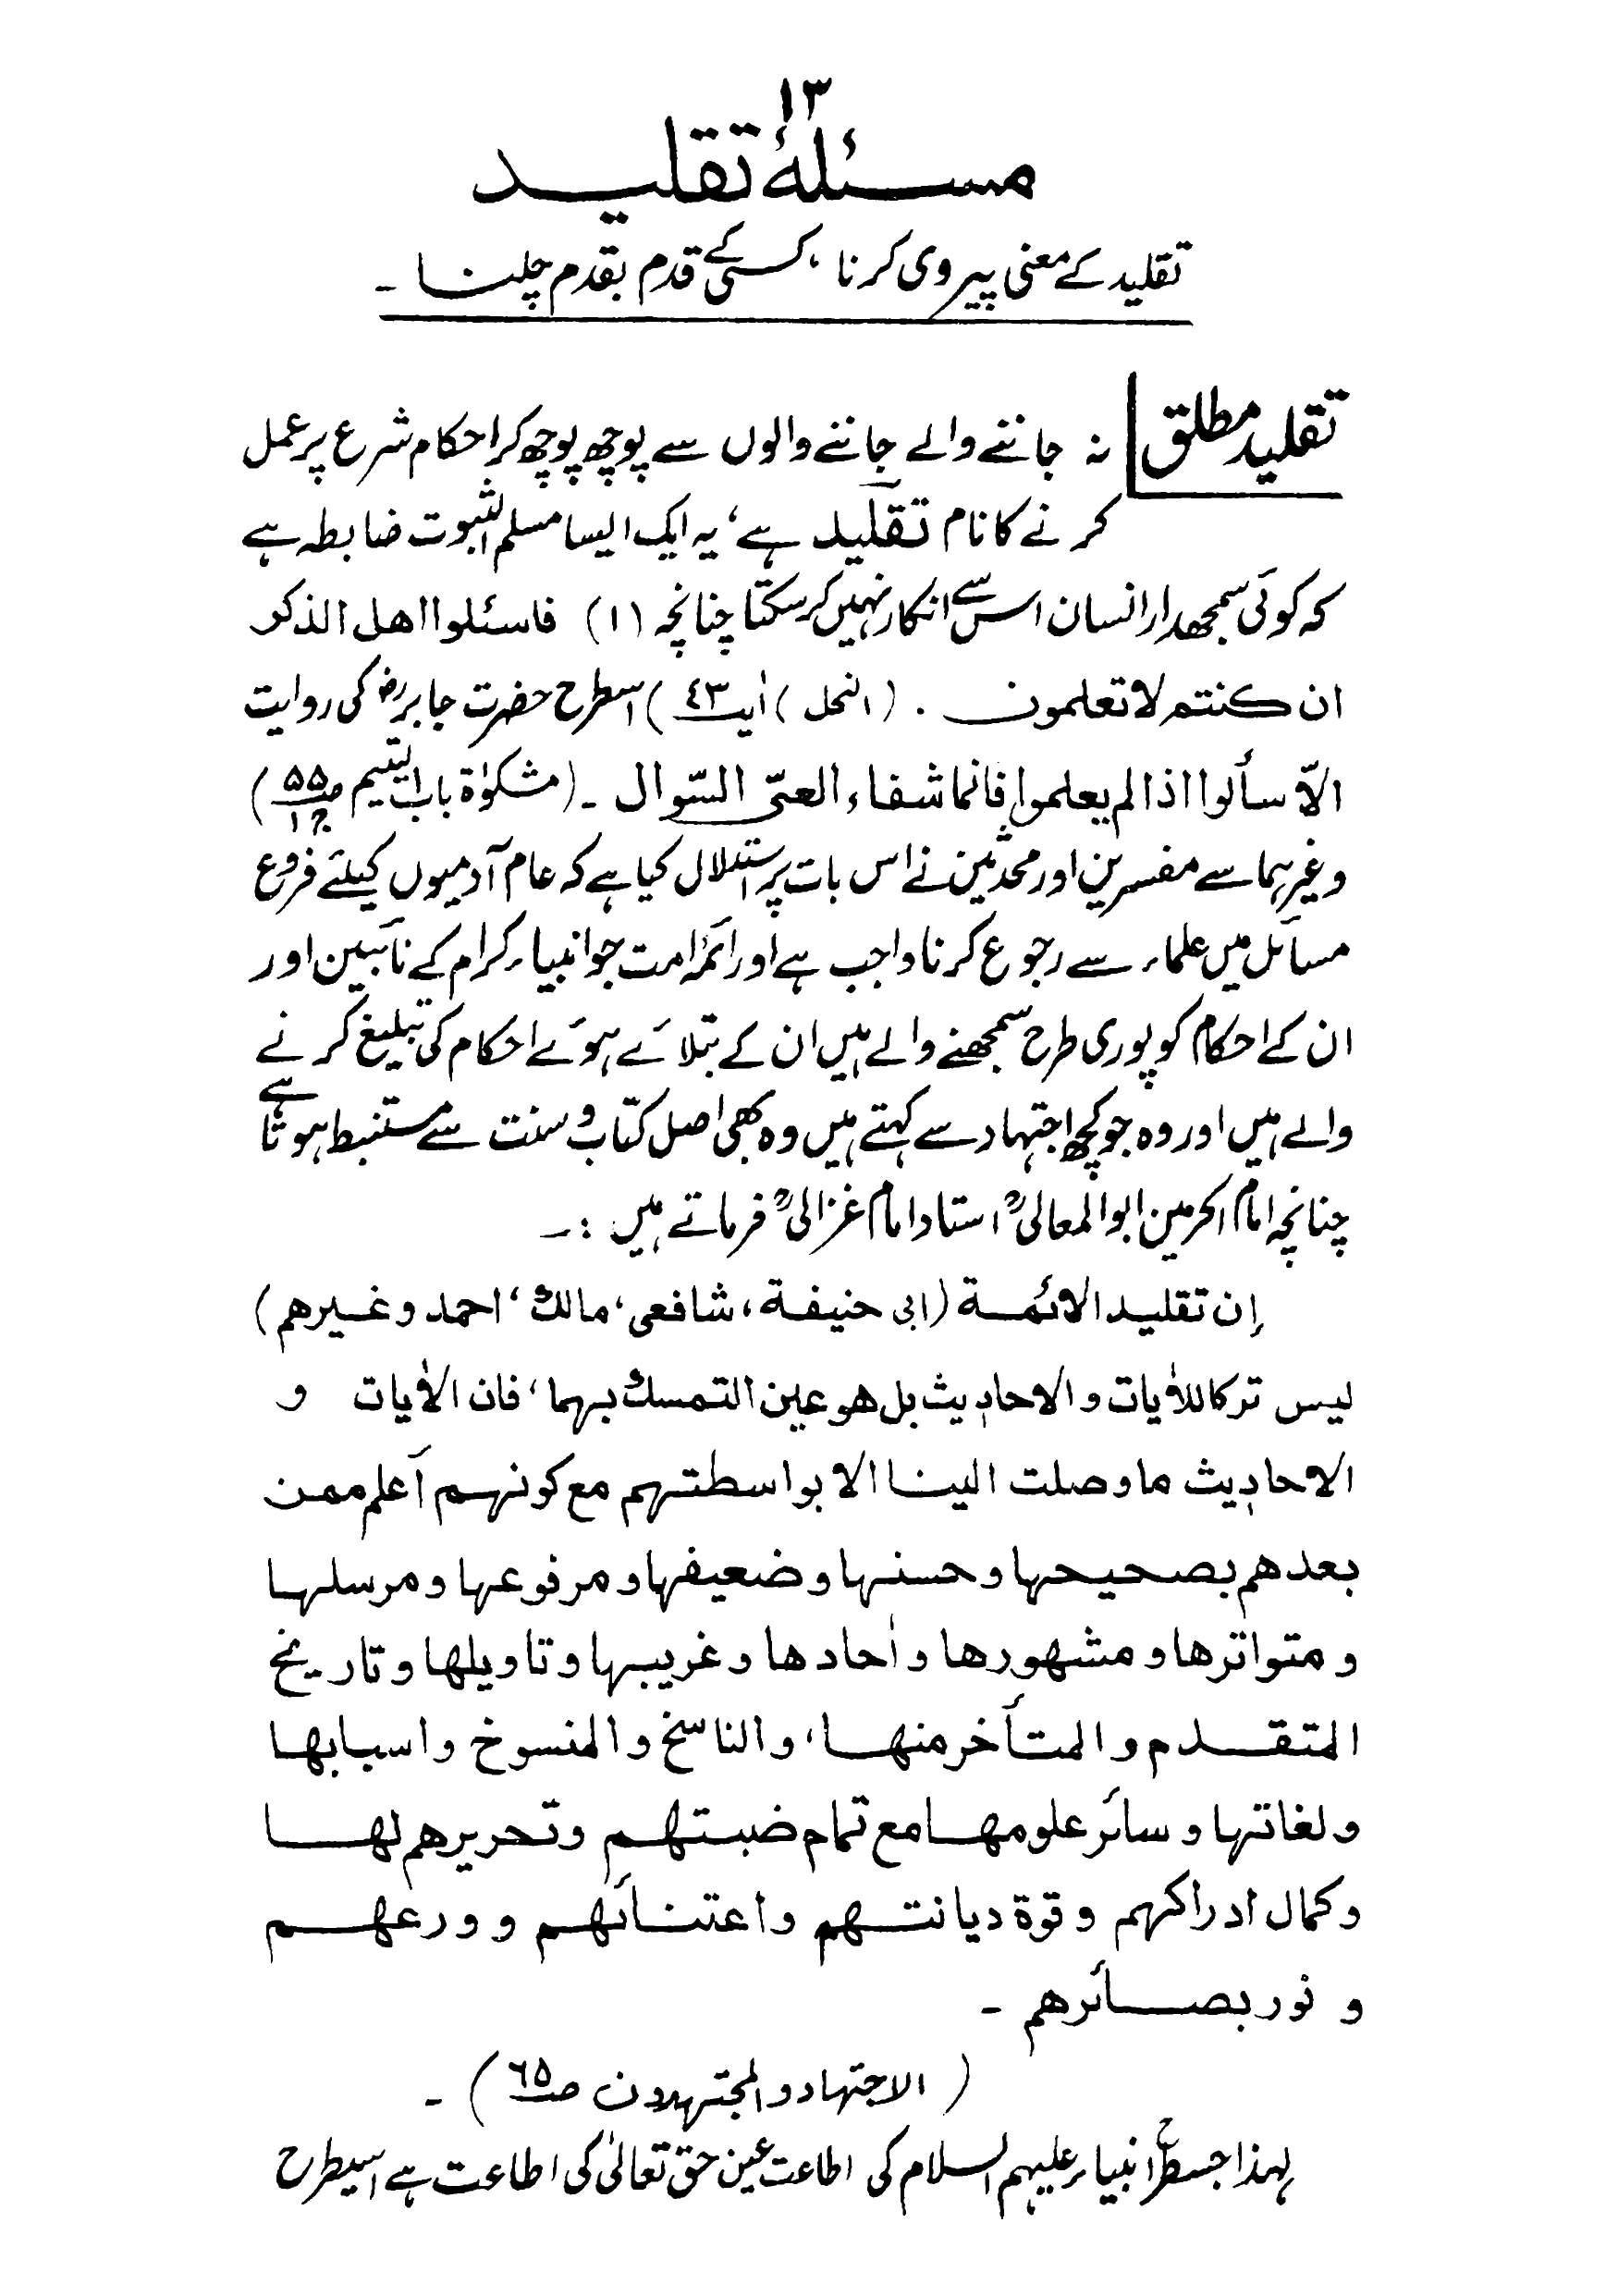 ۱۳
مسئلۂ تقلید
تقلید کے معنی پیروی کرنا، کسی کے قدم بقدم چلنا ۔
تقلید مطلق
نہ جاننے والے جاننے والوں سے پوچھ پوچھ کر احکام شرع پر عمل
کرنے کا نام تقلید ہے، یہ ایک ایسا مسلم الثبوت ضابطہ ہے
کہ کوئی سمجھدار انسان اس سے انکار نہیں کر سکتا چنانچہ (۱) فاسئلوا اهل الذكر
ان كنتم لا تعلمون . (النحل) اٰیت ٤٣) اسطرح حضرت جابر رضؓ کی روایت
الاّ سألوا اذا لم يعلموا فانما شفاء العىّ السّوال ۔ (مشکوٰۃ باب التیمم ص ۵۵ ج ۱)
وغیرہما سے مفسرین اور محدثین نے اس بات پر استدلال کیا ہے کہ عام آدمیوں کیلئے فروع
مسائل میں علماء سے رجوع کرنا واجب ہے اور ائمہ امت جو انبیاء کرام کے نائبین اور
ان کے احکام کو پوری طرح سمجھنے والے ہیں ان کے بتلائے ہوئے احکام کی تبلیغ کرنے
والے ہیں اور وہ جو کچھ اجتہاد سے کہتے ہیں وہ بھی اصل کتاب و سنت سے مستنبط ہوتا ہے
چنانچہ امام الحرمین ابو المعالیؒ استاد امام غزالیؒ فرماتے ہیں :۔
إن تقليد الائمة (ابى حنيفة، شافعى، مالك، احمد وغيرهم)
ليس تركا للاٰيات والاحاديث بل هو عين التمسك بهما، فان الاٰيات و
الاحاديث ما وصلت الينا الا بواسطتهم مع كونهم أعلم ممن
بعدهم بصحيحها وحسنها وضعيفها ومرفوعها ومرسلها
ومتواترها ومشهورها واٰحادها وغريبها وتاويلها وتاريخ
المتقدم والمتأخر منها، والناسخ والمنسوخ واسبابها
ولغاتها وسائر علومها مع تمام ضبتهم وتحريرهم لها
وكمال ادراكهم وقوة ديانتهم واعتنائهم وورعهم
ونور بصائرهم ۔
(الاجتہاد والمجتہدون ص ٦۵) ۔
لہذا جسطرح انبیاء علیہم السلام کی اطاعت عین حق تعالیٰ کی اطاعت ہے اسیطرح